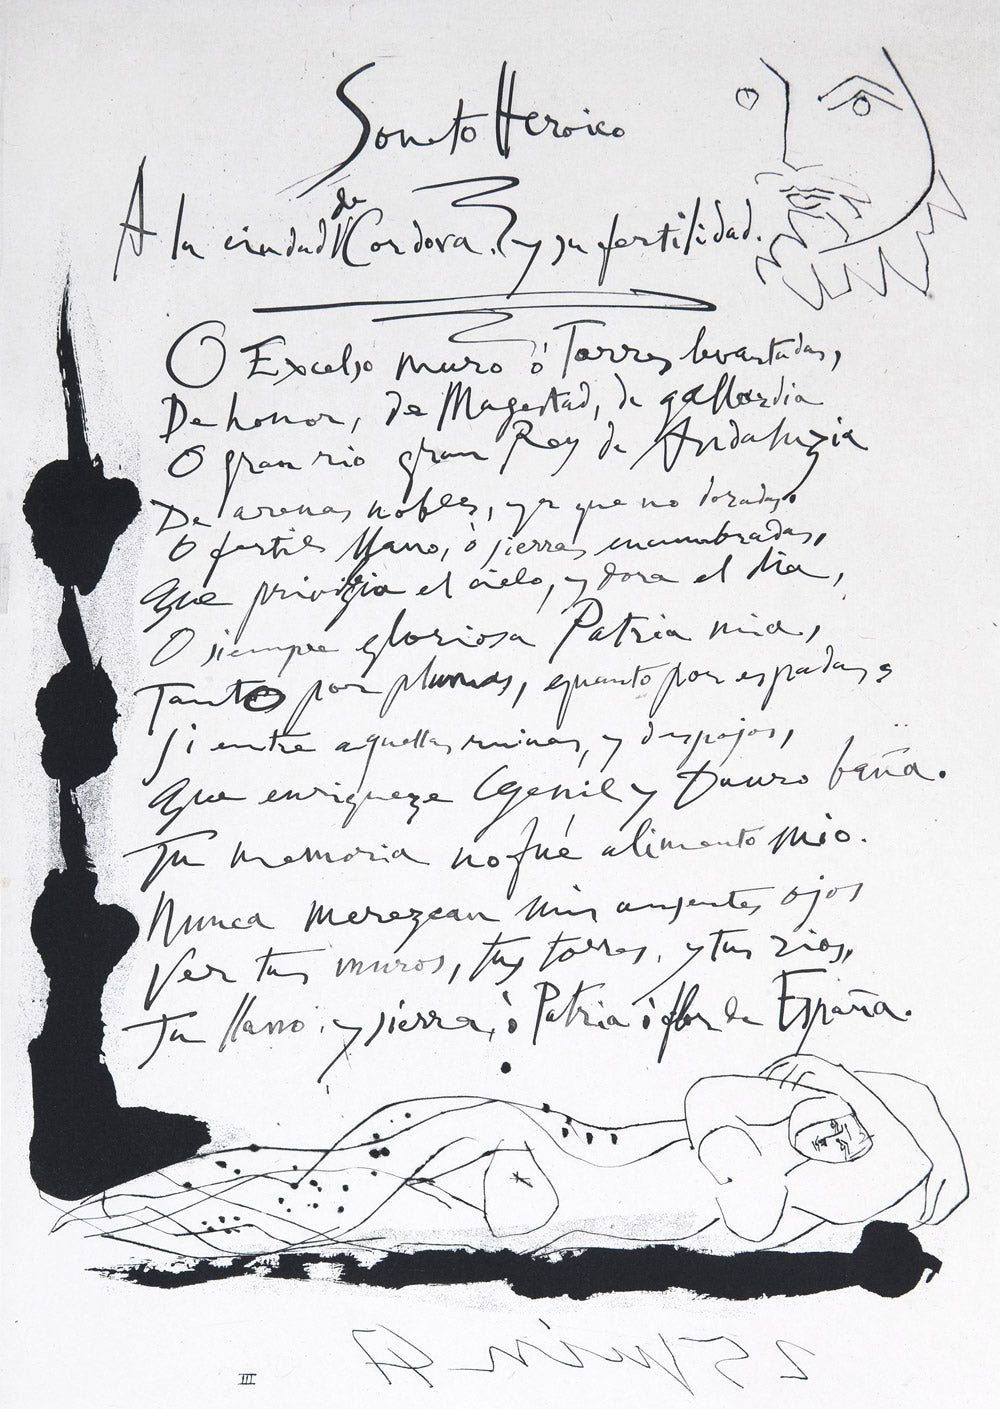 Soneto Heroico
A la ciudad de Cordova, y su fertilidad.
O Excelso muro ò Torres levantadas,
De honor, de Magestad, de gallardia
O gran rio gran Rey de Andaluzia
De arenas nobles, ya que no doradas.
O fertil llano, ò sierras encumbradas,
Que privilegia el cielo, y dora el dia,
O siempre gloriosa Patria mia,
Tanto por plumas, quanto por espadas,
Si entre aquellas ruinas, y despojos,
Que enriqueze Genil y Dauro baña.
Tu memoria no fué alimento mio.
Nunca merezcan mis ausentes ojos
Ver tus muros, tus torres, y tus rios,
Tu llano, y sierra, ò Patria ò flor de España.
25 juin 47
III